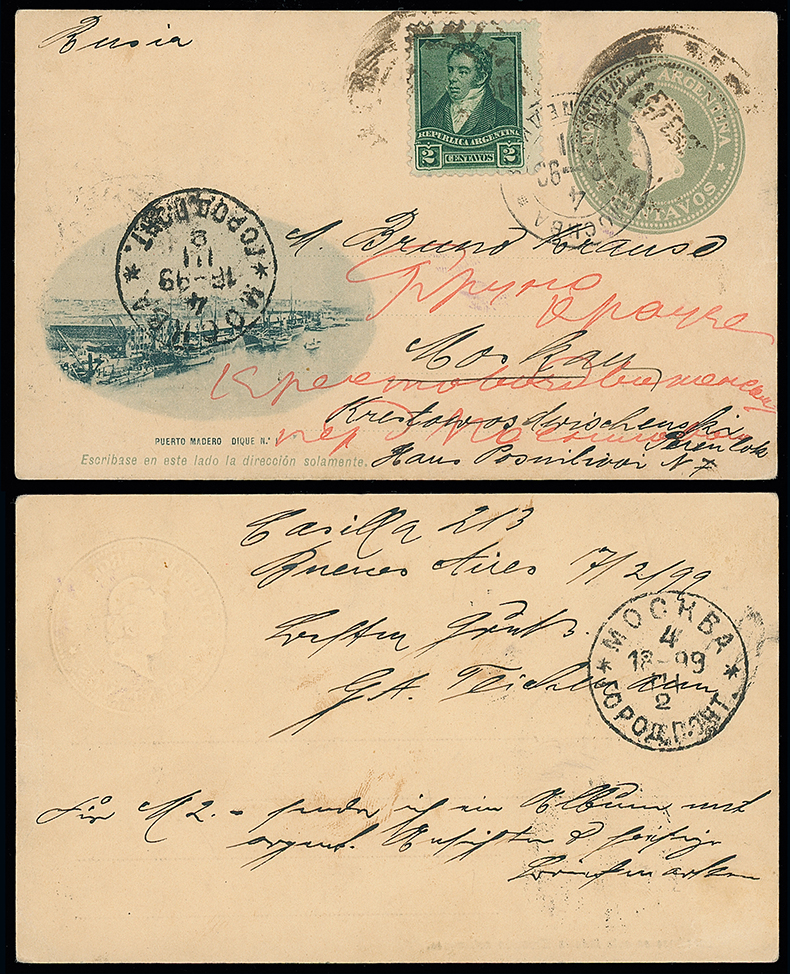 Rusia
REPUBLICA ARGENTINA
2 CENTAVOS 2
ARGENTINA
CENTAVOS
МОСКВА
4
18-99
III
ГОРОД. ПОЧТ.
M. Bruno Krause
Бруно
Краузе
Moskau
Krestowosdwischenski
Pereulok
Haus N 7
PUERTO MADERO DIQUE N.º 1
Escribase en este lado la dirección solamente.
Casilla 213
Buenos Aires 17/2/99
Besten Gruß.
МОСКВА
4
18-99
III
2
ГОРОД. ПОЧТ.
Für M 2.- sende ich ein Album mit
argent. Ansichten &
Briefmarken